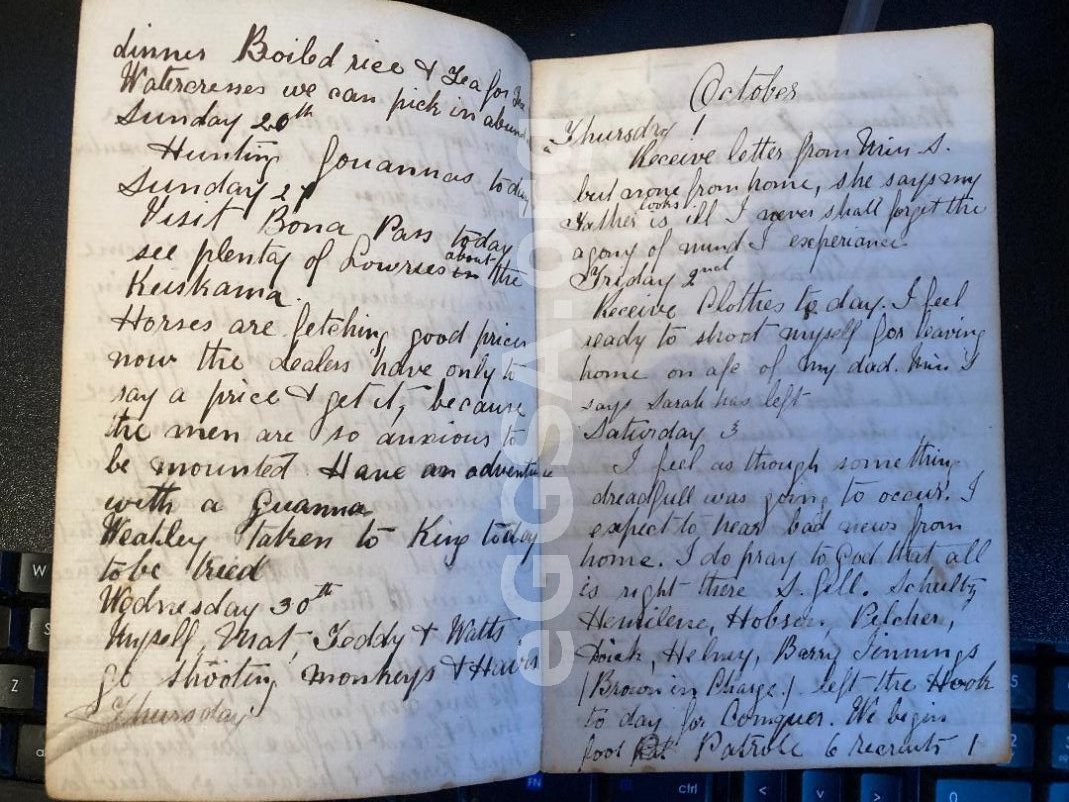 dinner Boiled rice & Tea for Tea
Watercresses we can pick in abund
Sunday 20th
Hunting Gouannas to day
Sunday 27
Visit Bona Pass today
see plenty of Lowries in about the
Keiskama.
Horses are fetching good prices
now the dealers have only to
say a price & get it, because
the men are so anxious to
be mounted Have an adventure
with a Guanna
Weakley taken to King today
to be tried
Wednesday 30th
Myself, Teddy & Watts
go shooting monkeys & Haws
Thursday
October
Thursday 1
Receive letter from Miss S.
but none from home, she says my
Father looks is ill I never shall forget the
agony of mind I experiance
Friday 2nd
Receive Clothes to day. I feel
ready to shoot myself for leaving
home on a/c of my dad. Miss S
says Sarah has left
Saturday 3
I feel as though something
dreadfull was going to occur. I
expect to hear bad news from
home. I do pray to God that all
is right there S. Gill. Schultz
Hobson, Pilcher,
Dick, Helney, Barry Jennings
(Brown in Charge.) left the Hook
to day for Comquer. We begin
foot Patrole 6 recruits 1
W
S
Z
a
ctrl
eGGSA.org